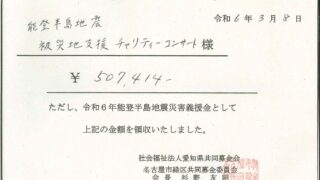 令和6年3月8日
能登半島地震
被災地支援 チャリティーコンサート 様
¥ 507,414-
ただし、令和6年能登半島地震災害義援金として
上記の金額を領収いたしました。
社会福祉法人愛知県共同募金会
名古屋市緑区共同募金委員会
会長 杉野友昭